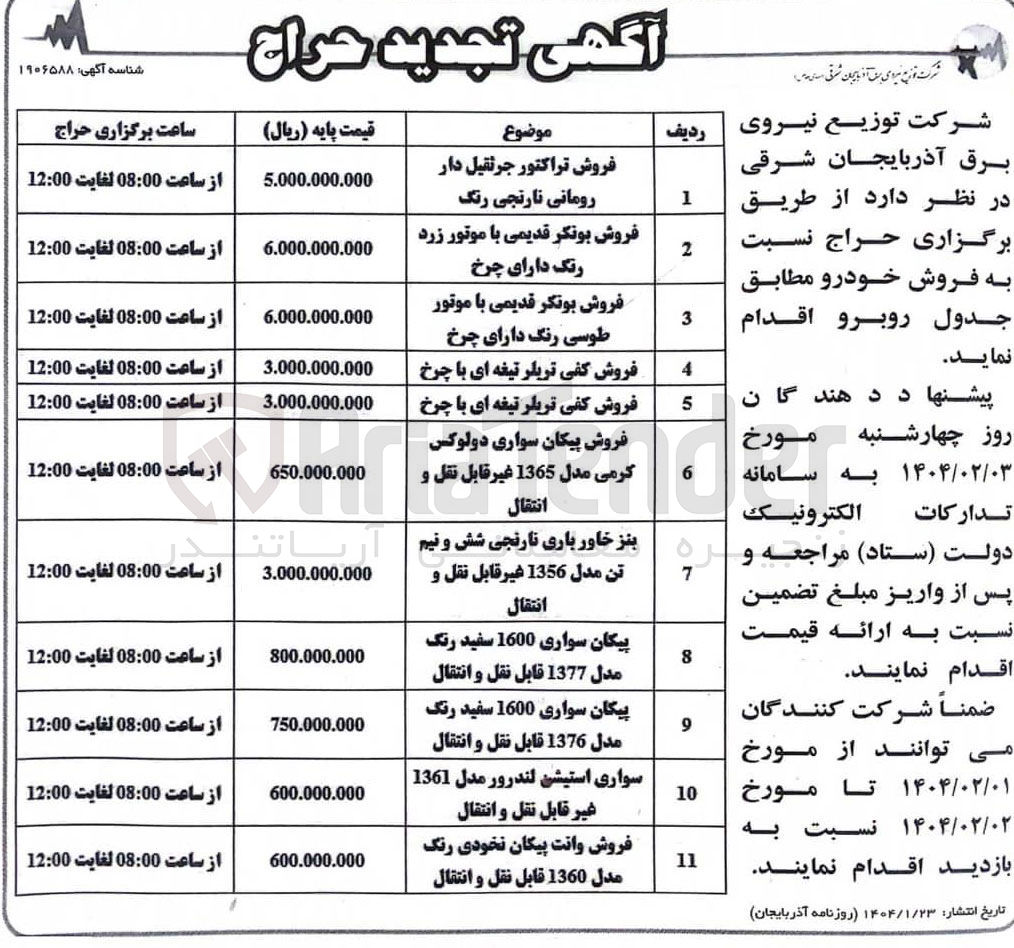 آگهی تجدید حراج
شرکت توزیع نیروی برق آذربایجان شرقی (سهامی خاص)
شناسه آگهی: ۱۹۰۶۵۸۸
شرکت توزیع نیروی
برق آذربایجان شرقی
در نظر دارد از طریق
برگزاری حراج نسبت
به فروش خودرو مطابق
جدول روبرو اقدام
نماید.
پیشنهاد دهندگان
روز چهارشنبه مورخ
۱۴۰۴/۰۲/۰۳ به سامانه
تدارکات الکترونیک
دولت (ستاد) مراجعه و
پس از واریز مبلغ تضمین
نسبت به ارائه قیمت
اقدام نمایند.
ضمناً شرکت کنندگان
می توانند از مورخ
۱۴۰۴/۰۲/۰۱ تا مورخ
۱۴۰۴/۰۲/۰۲ نسبت به
بازدید اقدام نمایند.
تاریخ انتشار: ۱۴۰۴/۱/۲۳ (روزنامه آذربایجان)
ردیف موضوع قیمت پایه (ریال) ساعت برگزاری حراج
1 فروش تراکتور جرثقیل دار 5.000.000.000 از ساعت 08:00 لغایت 12:00
رومانی نارنجی رنگ
2 فروش بونکر قدیمی با موتور زرد 6.000.000.000 از ساعت 08:00 لغایت 12:00
رنگ دارای چرخ
3 فروش بونکر قدیمی با موتور 6.000.000.000 از ساعت 08:00 لغایت 12:00
طوسی رنگ دارای چرخ
4 فروش کفی تریلر تیغه ای با چرخ 3.000.000.000 از ساعت 08:00 لغایت 12:00
5 فروش کفی تریلر تیغه ای با چرخ 3.000.000.000 از ساعت 08:00 لغایت 12:00
فروش پیکان سواری دولوکس
6 کرمی مدل 1365 غیرقابل نقل و 650.000.000 از ساعت 08:00 لغایت 12:00
انتقال
بنز خاور باری نارنجی شش و نیم
7 تن مدل 1356 غیرقابل نقل و 3.000.000.000 از ساعت 08:00 لغایت 12:00
انتقال
8 پیکان سواری 1600 سفید رنگ 800.000.000 از ساعت 08:00 لغایت 12:00
مدل 1377 قابل نقل و انتقال
9 پیکان سواری 1600 سفید رنگ 750.000.000 از ساعت 08:00 لغایت 12:00
مدل 1376 قابل نقل و انتقال
10 سواری استیشن لندرور مدل 1361 600.000.000 از ساعت 08:00 لغایت 12:00
غیر قابل نقل و انتقال
11 فروش وانت پیکان نخودی رنگ 600.000.000 از ساعت 08:00 لغایت 12:00
مدل 1360 قابل نقل و انتقال
AriaTender
زنجیره معاملاتی آریاتندر